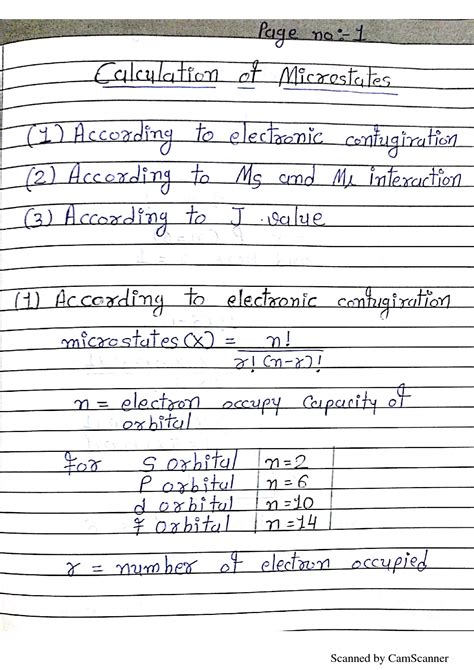 Page no:- 1
Calculation of Microstates
(1) According to electronic contugiration
(2) According to Ms and ML interaction
(3) According to J value
(1) According to electronic contugiration
microstates (x) = n!
r! (n-r)!
n = electron occupy Capacity of
orbital
for S orbital n=2
P orbital n=6
d orbital n=10
f orbital n=14
r = number of electron occupied
Scanned by CamScanner